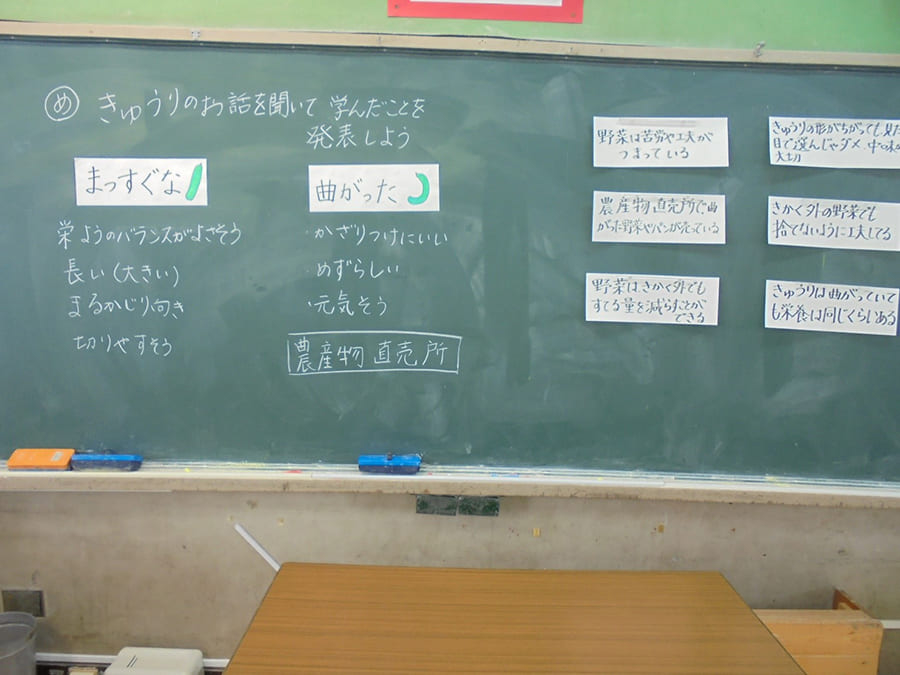 め きゅうりのお話を聞いて 学んだことを
発表しよう
まっすぐな
栄ようのバランスがよさそう
長い(大きい)
まるかじり向き
切りやすそう
曲がった
・かざりつけにいい
・めずらしい
・元気そう
農産物直売所
野菜は苦労や工夫が
つまっている
農産物直売所で曲
がった野菜やパンが売っている
野菜はきかく外でも
すてる量を減らすことが
できる
きゅうりの形がちがっても見た
目で選んじゃダメ。中味
大切
きかく外の野菜でも
捨てないように工夫してる
きゅうりは曲がっていて
も栄養は同じくらいある